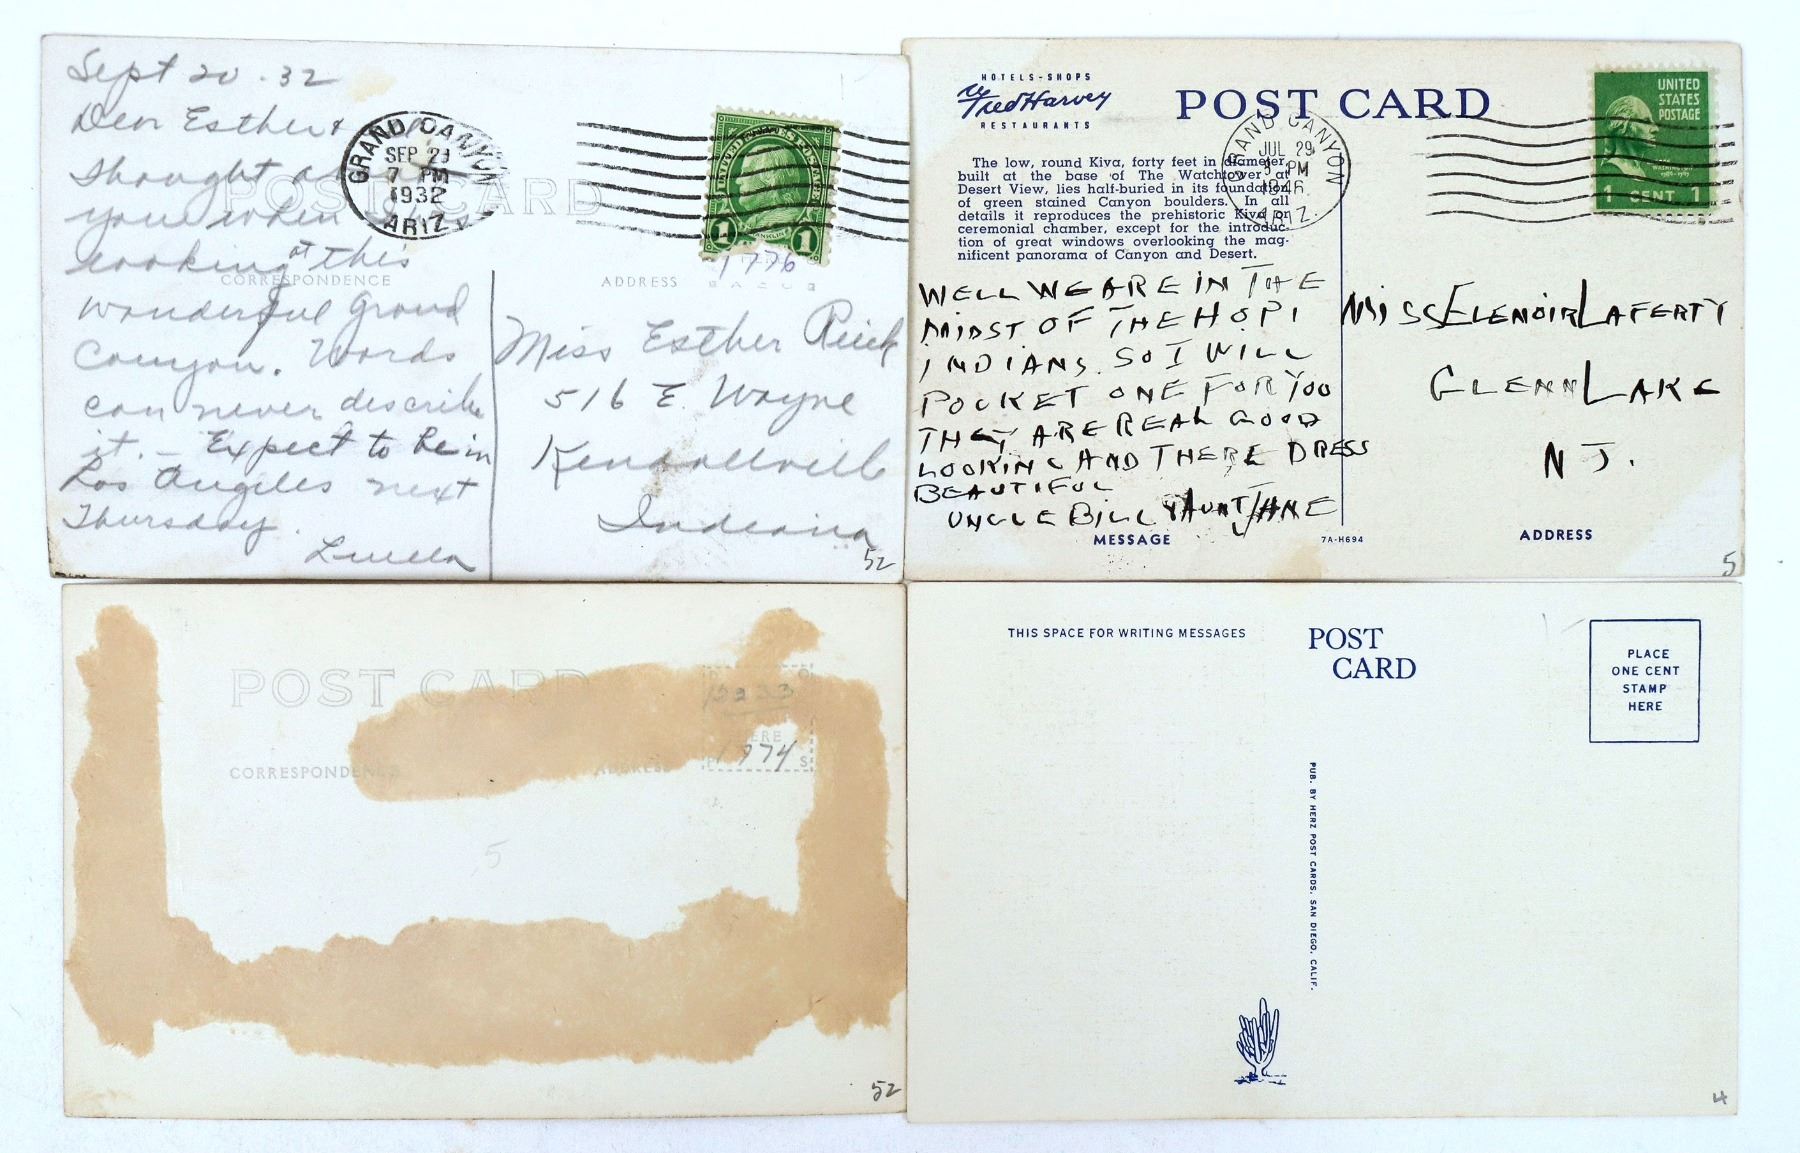 Sept 20 - 32
Dear Esther &
thought of
you when
looking at this
wonderful Grand
Canyon. Words
can never describe
it. - Expect to be in
Los Angeles next
Thursday.
Luella
POST CARD
CORRESPONDENCE
ADDRESS
GRAND CANYON
SEP 2
7 PM
1932
ARIZ
1 1
1776
Miss Esther
516 E. Wayne
Kendallville
Indiana
52
HOTELS-SHOPS
Fred Harvey
RESTAURANTS
POST CARD
The low, round Kiva, forty feet in diameter,
built at the base of The Watchtower at
Desert View, lies half-buried in its foundation
of green stained Canyon boulders. In all
details it reproduces the prehistoric Kiva or
ceremonial chamber, except for the introduc-
tion of great windows overlooking the mag-
nificent panorama of Canyon and Desert.
GRAND CANYON
JUL 29
PM
1946
ARIZ.
UNITED
STATES
POSTAGE
1 CENT 1
WELL WE ARE IN THE
MIDST OF THE HOPI
INDIANS. SO I WILL
POCKET ONE FOR YOO
THEY ARE REAL GOOD
LOOKING AND THERE DRESS
BEAUTIFUL
UNCLE BILL & AUNT JANE
MISS ELENOIR LAFERTY
GLENN LAKE
NJ.
MESSAGE
7A-H694
ADDRESS
5
POST CARD
CORRESPONDENCE
ADDRESS
HERE
1974
5
52
THIS SPACE FOR WRITING MESSAGES
POST
CARD
PLACE
ONE CENT
STAMP
HERE
PUB. BY HERZ POST CARDS, SAN DIEGO, CALIF.
4